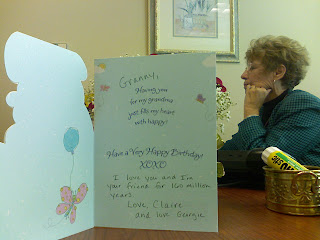 Granny,
Having you
for my grandma
just fills my heart
with happy!
Have a Very Happy Birthday!
XOXO
I love you and I'm
your friend for 160 million
years.
Love, Claire
and love Georgie